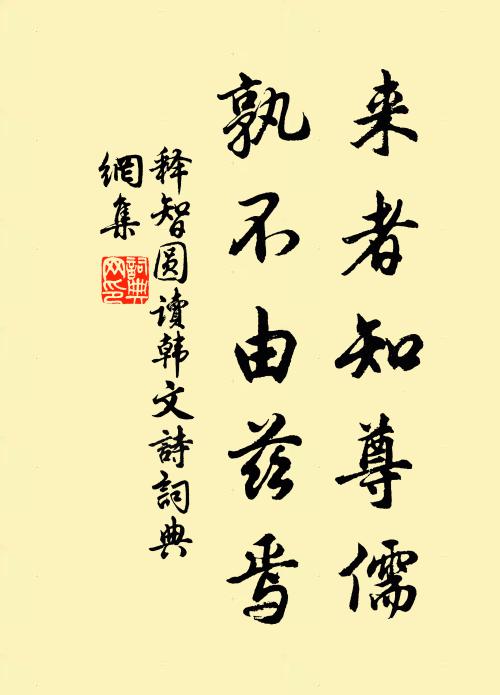 来者知尊儒
孰不由兹焉
释智圆读韩文詩詞典
網集
詞典
网印